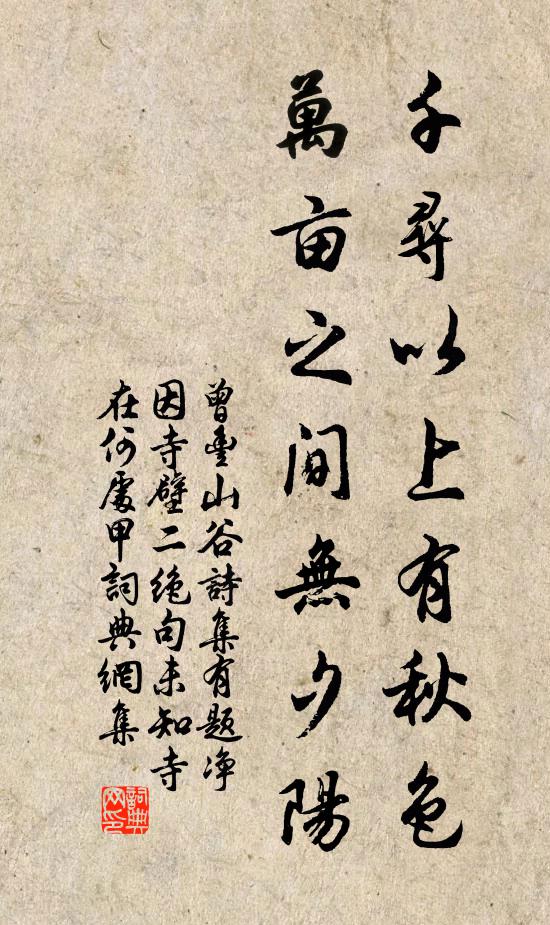 千尋以上有秋色
萬亩之间無夕陽
曾豊山谷詩集有题净
因寺壁二绝句未知寺
在何處甲詞典網集
詞典网印